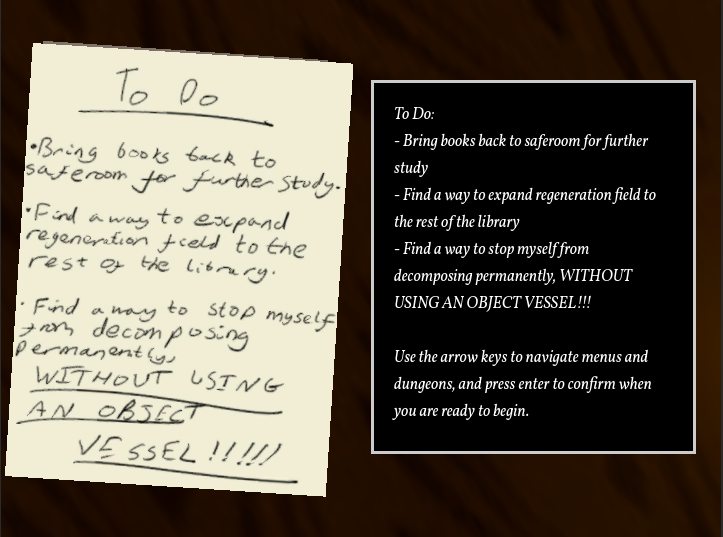 To Do
•Bring books back to
saferoom for further study.
•Find a way to expand
regeneration field to the
rest of the library.
• Find a way to stop myself
from decomposing
permanently,
WITHOUT USING
AN OBJECT
VESSEL!!!!!
To Do:
- Bring books back to saferoom for further
study
- Find a way to expand regeneration field to
the rest of the library
- Find a way to stop myself from
decomposing permanently, WITHOUT
USING AN OBJECT VESSEL!!!
Use the arrow keys to navigate menus and
dungeons, and press enter to confirm when
you are ready to begin.